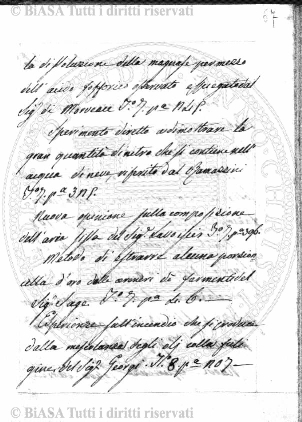 © BiASA Tutti i diritti riservati
67
la dissoluzione della magnesia per mezzo
dell'acido fosforico osservato e spiegato dal
Sig.r di Morveau T.o 7. p.a
Sperimento diretto a dimostrare la
gran quantità di nitro che si contiene nell'
acqua di neve riferito dal
T.o 7. p.a 3
Nuova opinione sulla composizione
dell'aria fissa del Sig.r Lavoisier T.o 7. p.a 396.
Metodo di estrarre alcuna porzione
della d'oro dalle ceneri di farmenti del
Sig.r Sage. T.o 7. p.a
Esperienze sull'incendio che si produce
dalla mescolanza degli olj colla fuli
gine. del Sig.r Georgi T. 8 p.a
© BiASA Tutti i diritti riservati